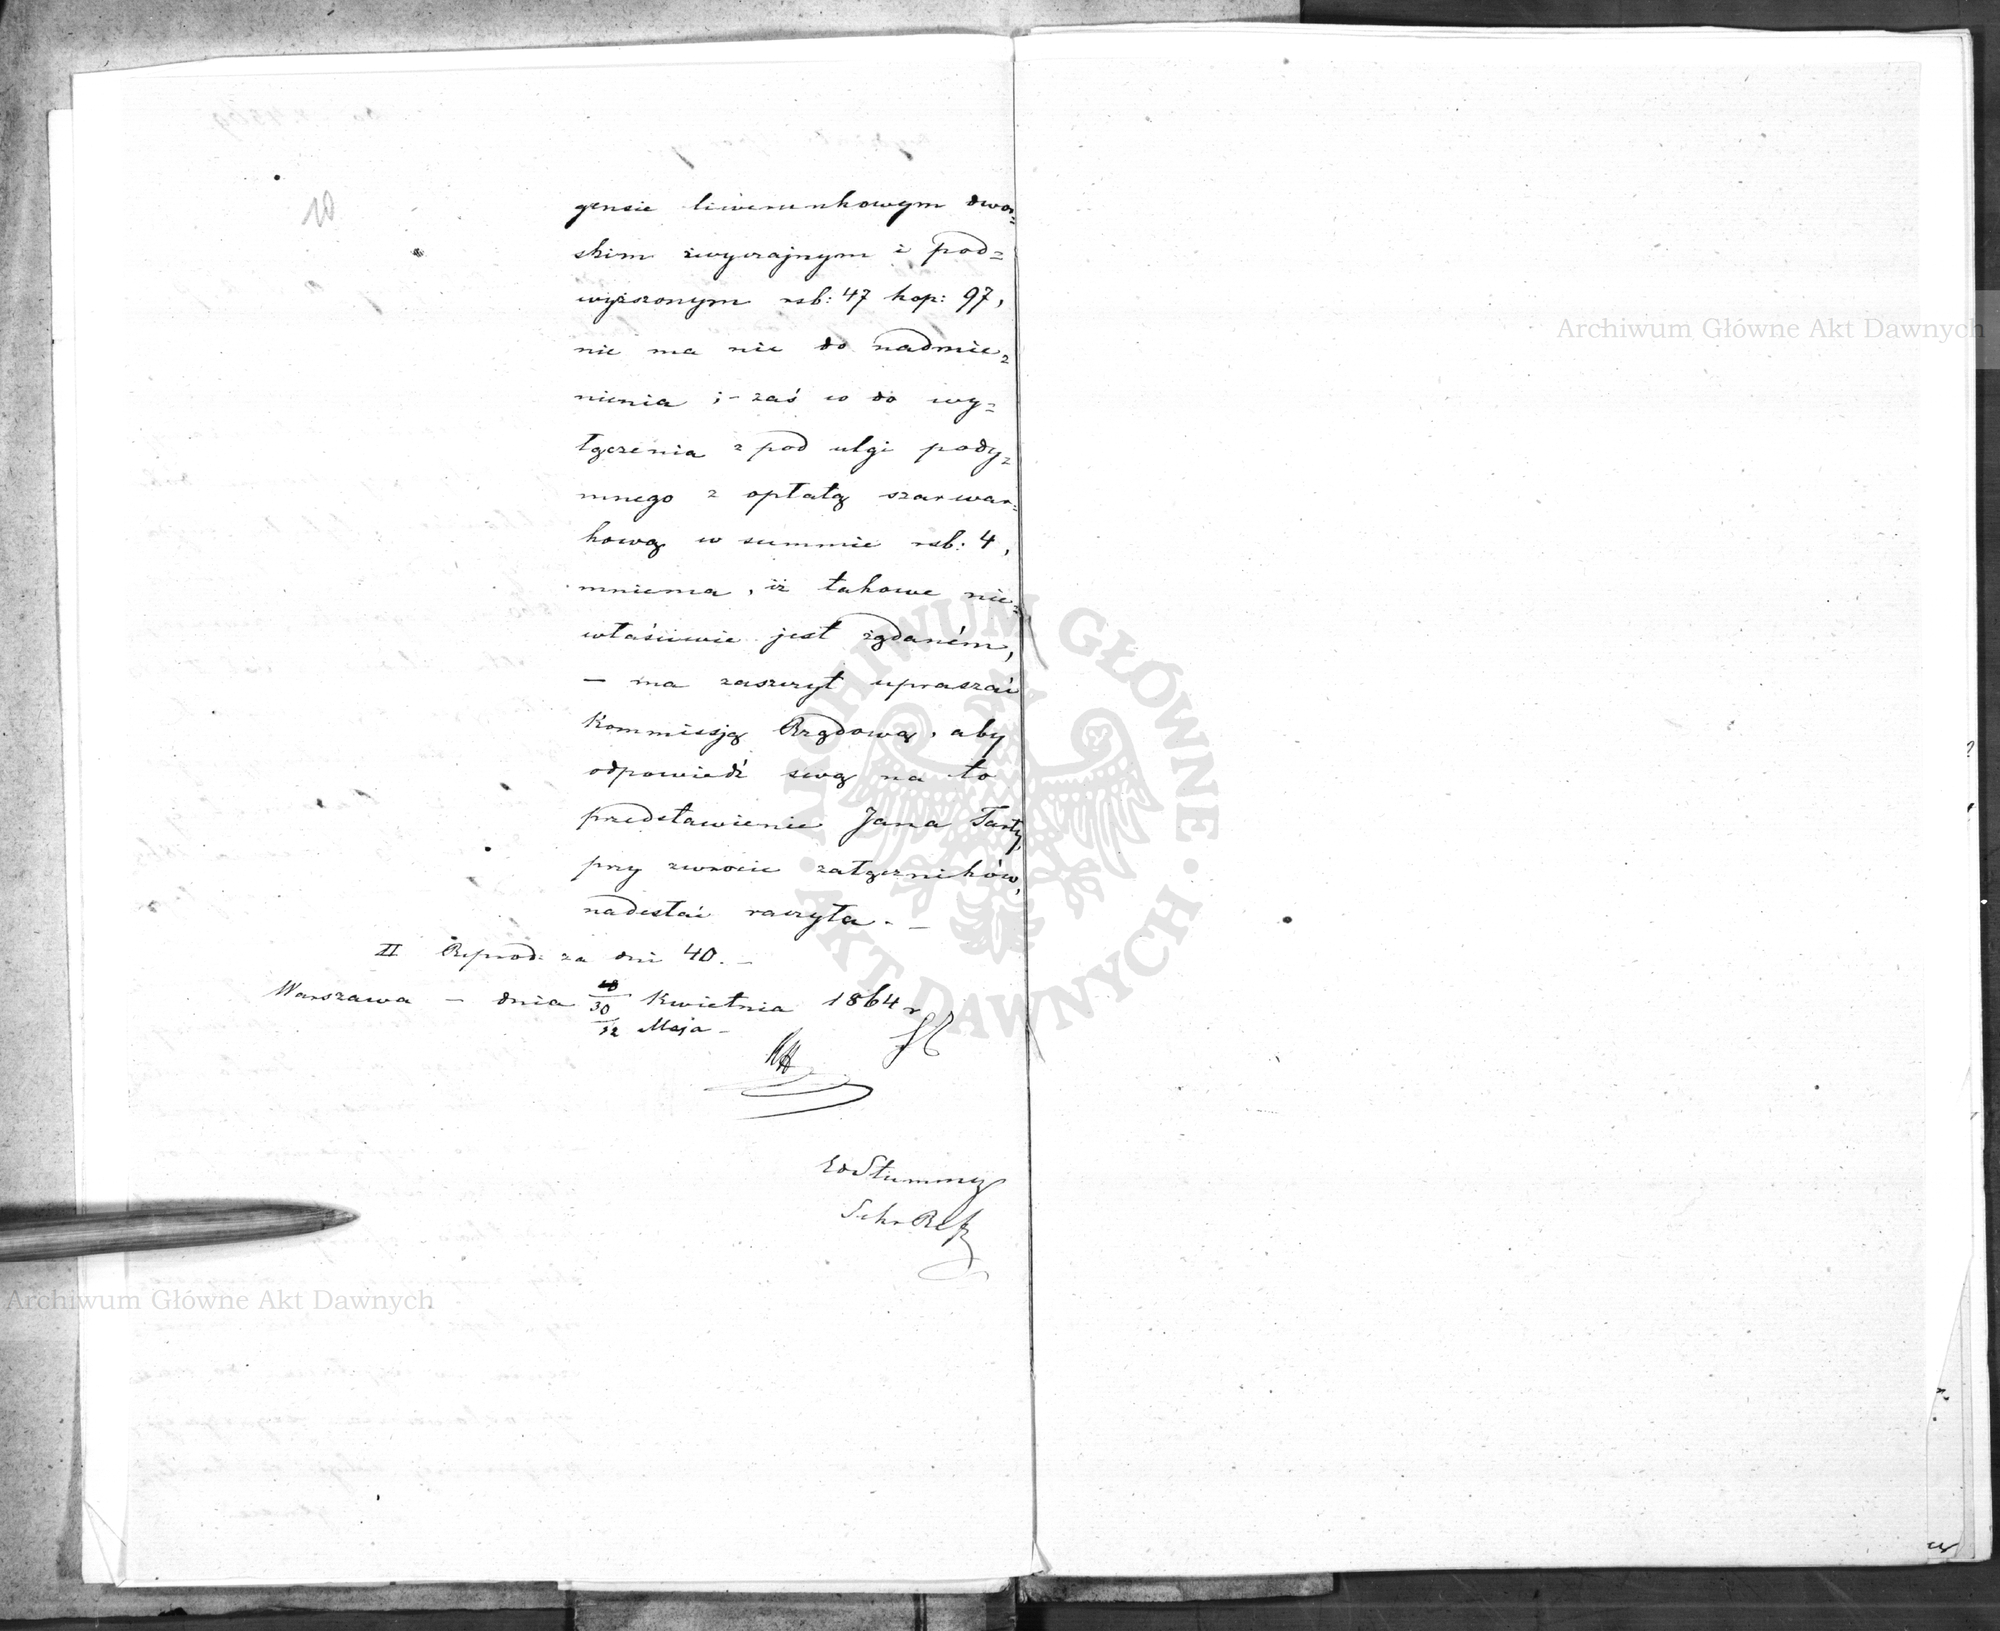 10
gensie liwerunkowym dwor=
skim zwyczajnym i pod=
wyższonym rsb: 47 kop: 97,
nie ma nic do nadmie=
nienia ;- zaś co do wy=
łączenia z pod ulgi pody=
mnego z opłatą szarwar=
kową w summie rsb: 4,
mniema, iż takowe nie=
właściwie jest żądaném,
— ma zaszczyt upraszać
Kommissją Rządową, aby
odpowiedź swą na to
przedstawienie Jana Tarły,
przy zwrocie załączników,
nadesłać raczyła. —
II Reprod: za dni 40. —
Warszawa — dnia 18/30 Kwietnia 1864 r
/12 Maja —
Ed Stummy
Sekr
Archiwum Główne Akt Dawnych
Archiwum Główne Akt Dawnych
ARCHIWUM GŁÓWNE AKT DAWNYCH